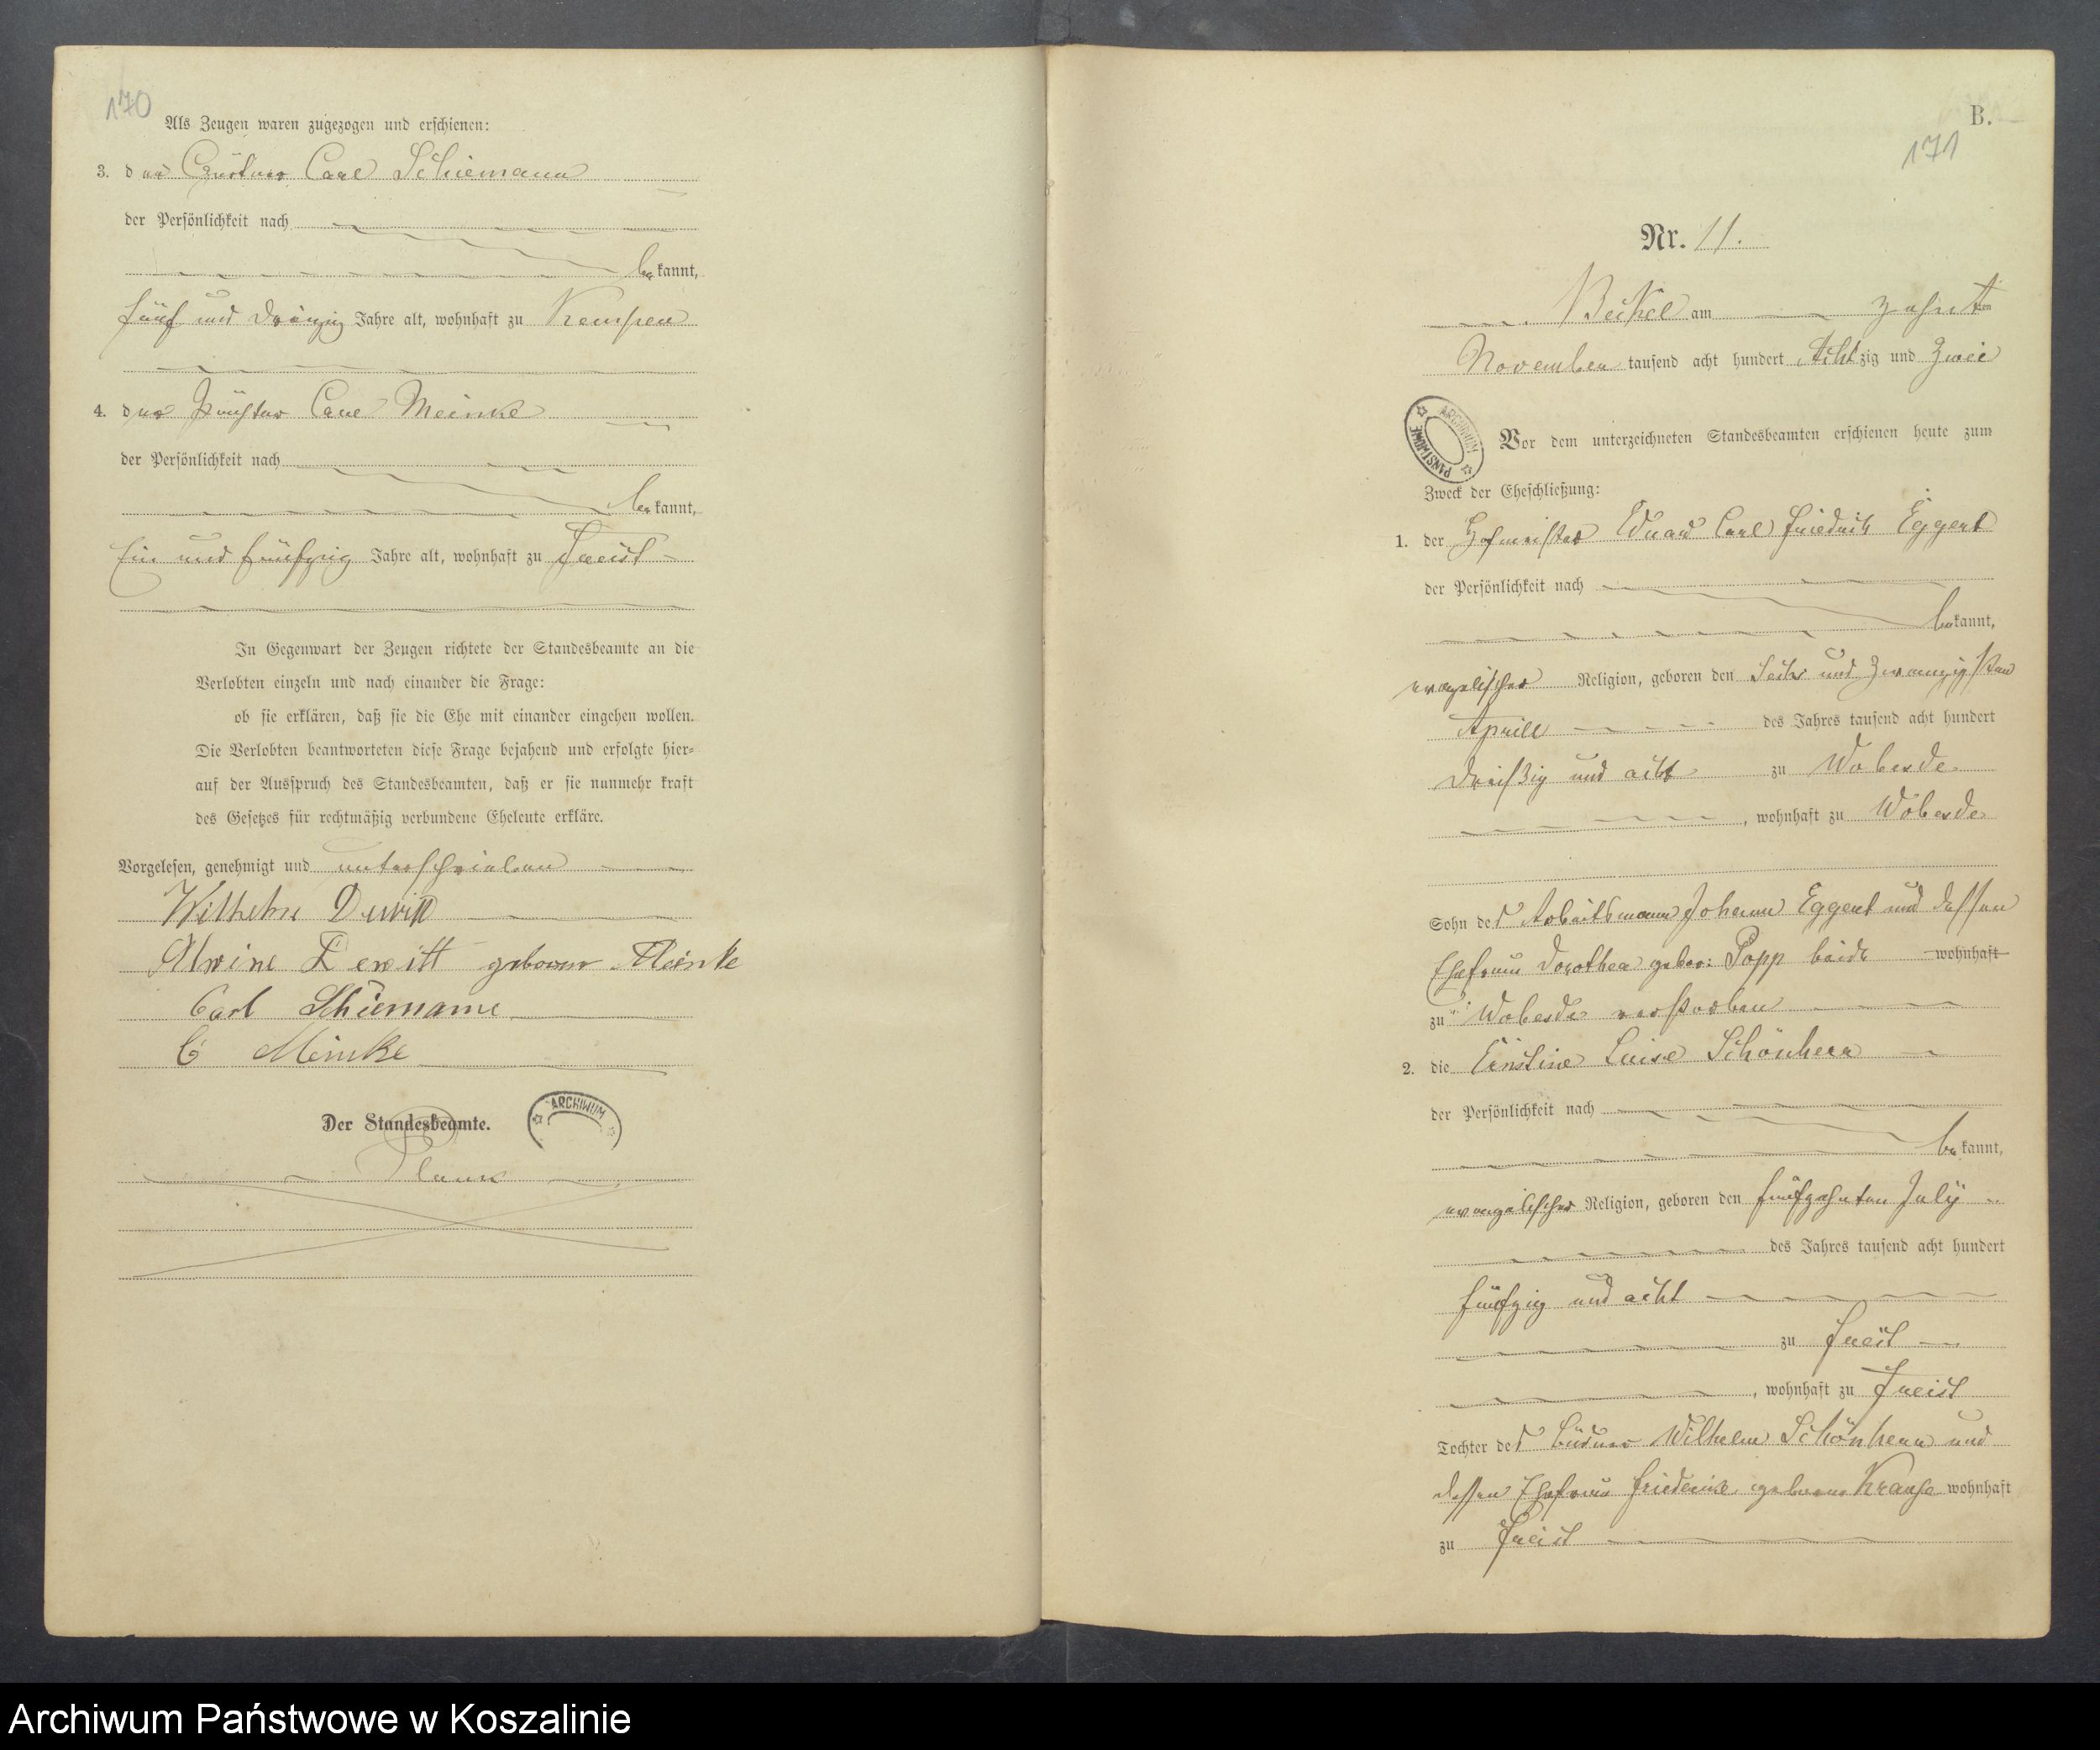 170
Als Zeugen waren zugezogen und erschienen:
3. der Carl Schiemann
der Persönlichkeit nach
bekannt,
fünf und dreißig Jahre alt, wohnhaft zu Kempen
4. der Carl Meinke
der Persönlichkeit nach
bekannt,
Ein und fünfzig Jahre alt, wohnhaft zu Freist
In Gegenwart der Zeugen richtete der Standesbeamte an die
Verlobten einzeln und nach einander die Frage:
ob sie erklären, daß sie die Ehe mit einander eingehen wollen.
Die Verlobten beantworteten diese Frage bejahend und erfolgte hier-
auf der Ausspruch des Standesbeamten, daß er sie nunmehr kraft
des Gesetzes für rechtmäßig verbundene Eheleute erkläre.
Vorgelesen, genehmigt und unterschrieben
Wilhelm Dewitt
Alwine Dewitt geborene Meinke
Carl Schiemann
C Meinke
Der Standesbeamte.
ARCHIWUM
B.
171
Nr. 11.
Veikel am zehnten
November tausend acht hundert Achtzig und Zwei
ARCHIWUM PAŃSTWOWE
Vor dem unterzeichneten Standesbeamten erschienen heute zum
Zweck der Eheschließung:
1. der Hofmeister Eduard Carl Friedrich Eggert
der Persönlichkeit nach
bekannt,
evangelischer Religion, geboren den Sechs und Zwanzigsten
Aprill des Jahres tausend acht hundert
dreißig und acht zu Wobesde
, wohnhaft zu Wobesde
Sohn des Arbeitsmann Johann Eggert und dessen
Ehefrau Dorothea gebor: Popp beide wohnhaft
zu Wobesde verstorben
2. die Ernstine Luise Schönherr
der Persönlichkeit nach
bekannt,
evangelischer Religion, geboren den fünfzehnten July
des Jahres tausend acht hundert
fünfzig und acht
zu Freist
, wohnhaft zu Freist
Tochter des Büdner Wilhelm Schönherr und
dessen Ehefrau Friederike geborene Krause wohnhaft
zu Freist
Archiwum Państwowe w Koszalinie